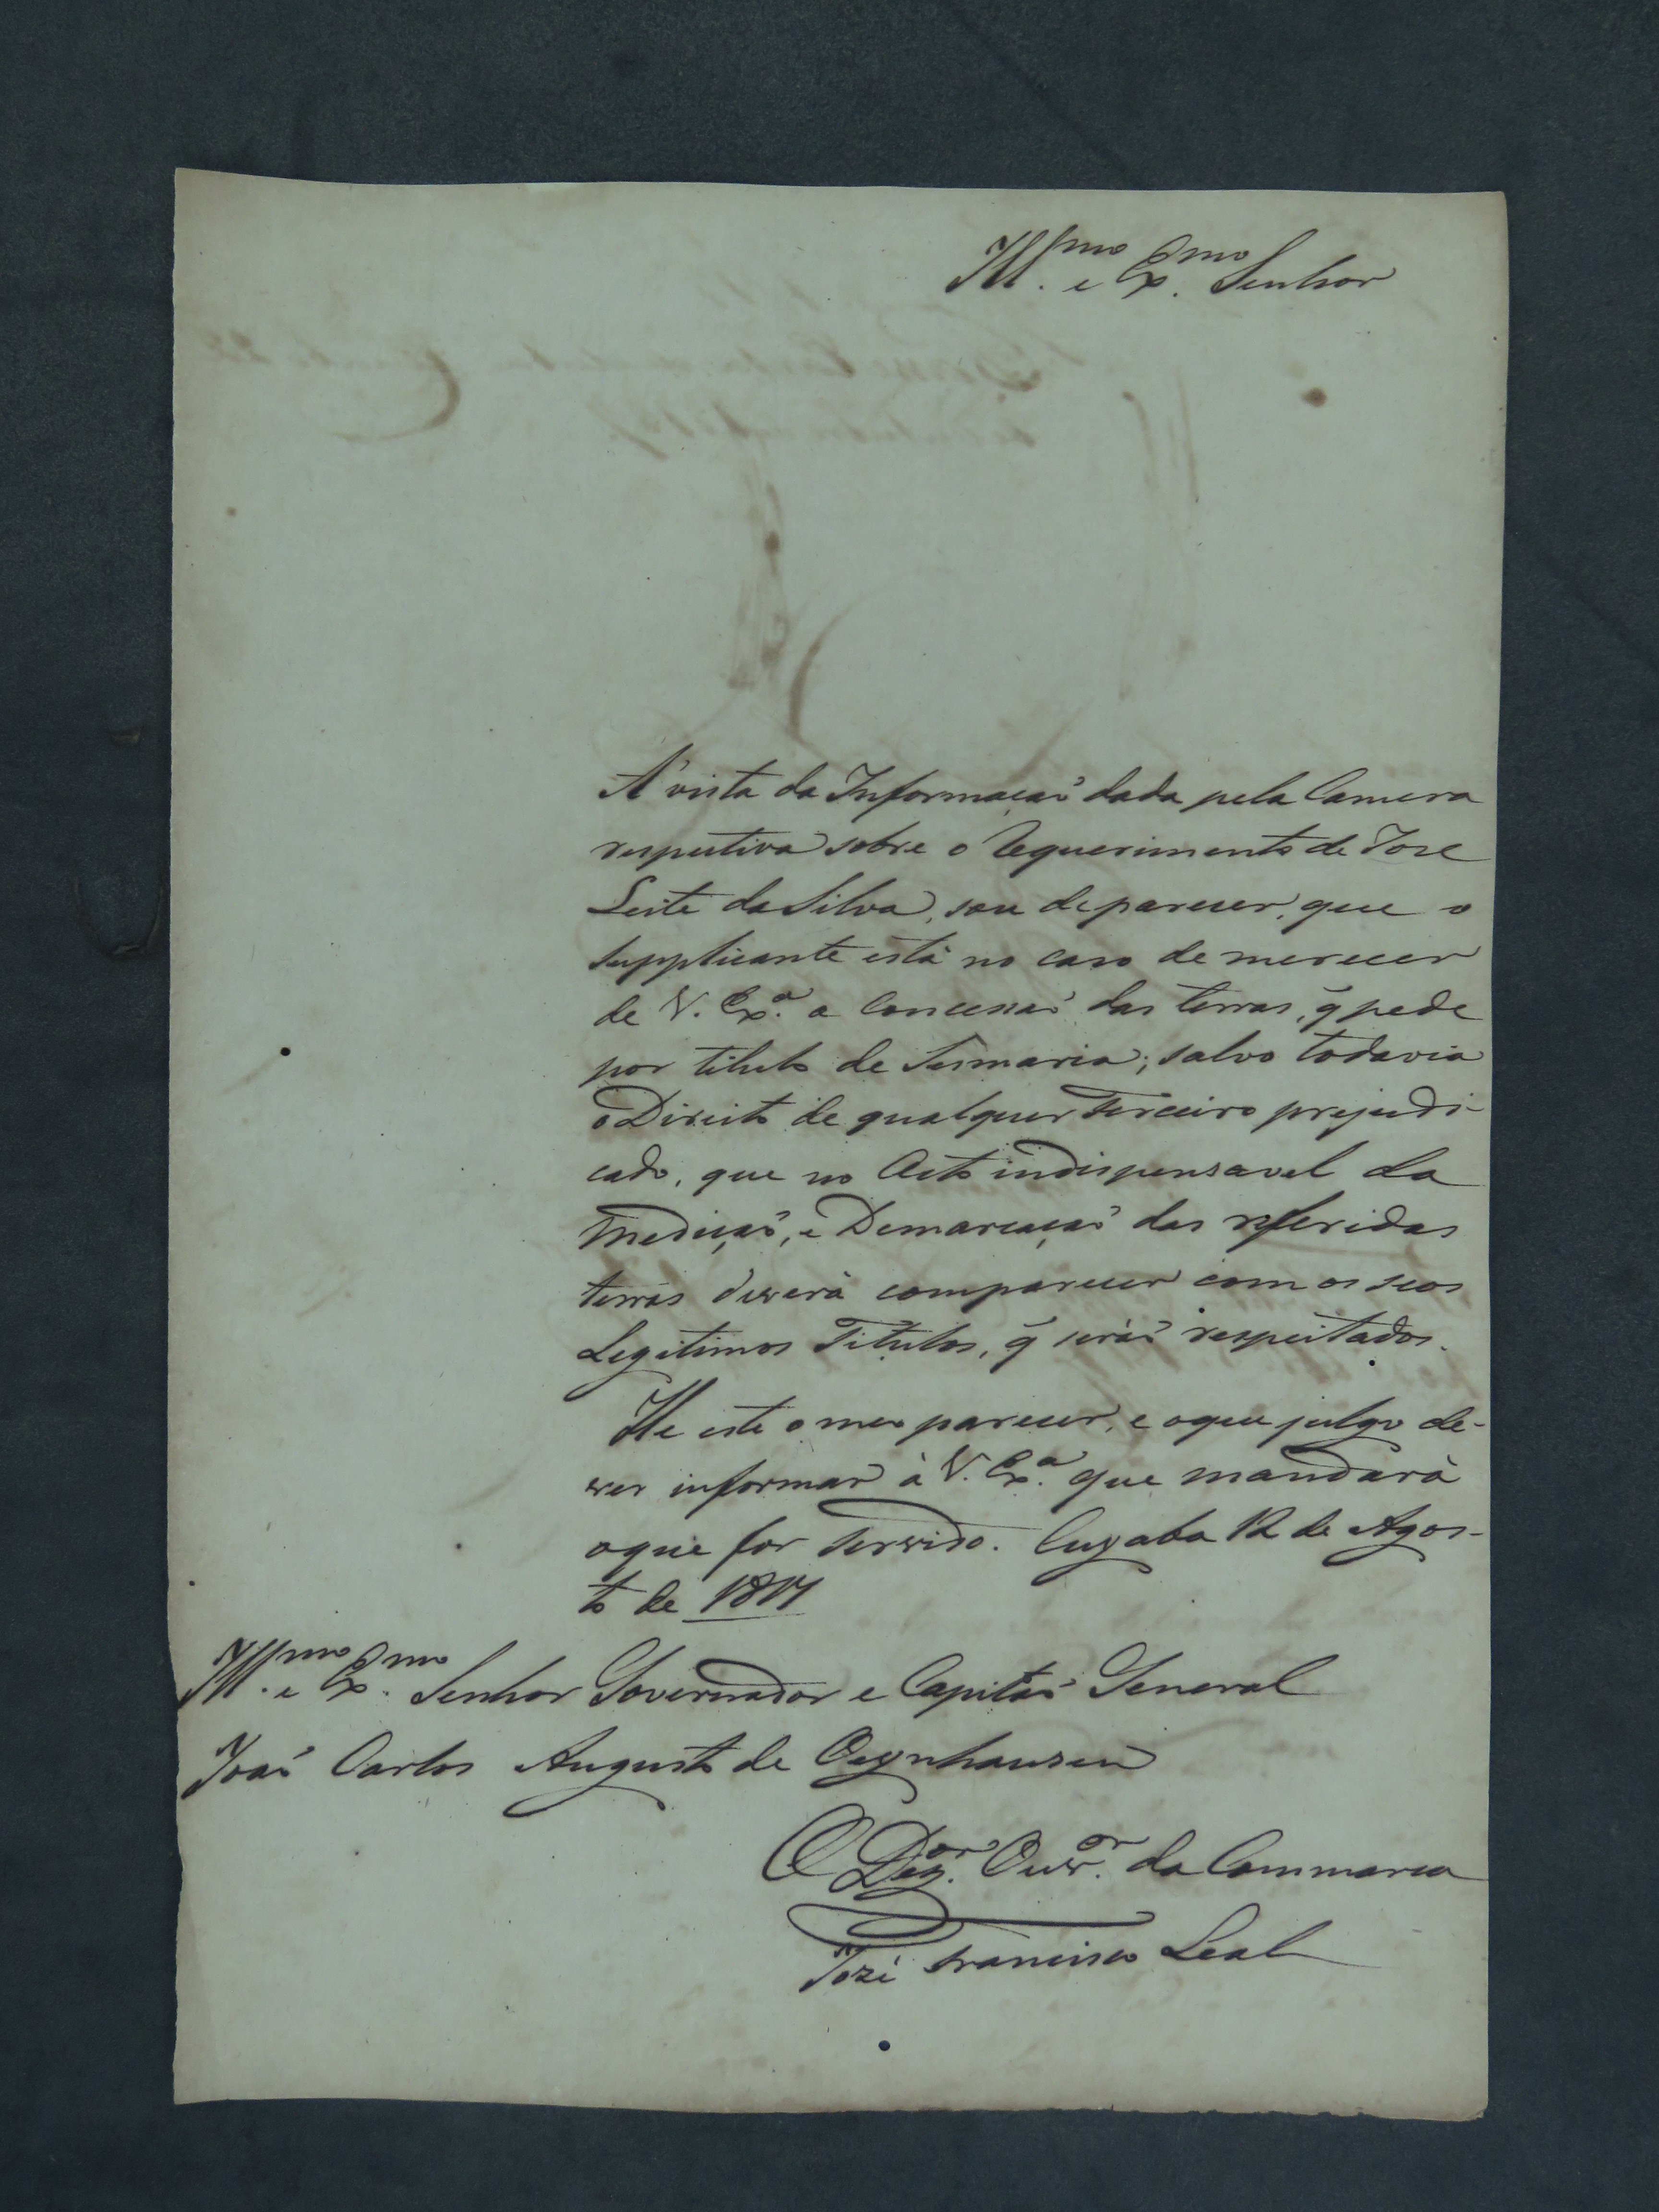 Ill.mo e Ex.mo Senhor
A' vista da Informaçaõ dada pela Camera
respectiva sobre o Requerimento de Jose
Leite da Silva, sou de parecer, que o
supplicante està no caso de merecer
de V. Ex.a a Concessaõ das terras, q̃ pede
por titulo de Sesmaria; salvo todavia
o Direito de qualquer Terceiro prejudi-
cado, que no Acto indispensavel da
Mediçaõ, e Demarcaçaõ das referidas
terras deverà comparecer com os seos
Legitimos Titulos, q̃ seraõ respeitados.
He este o meo parecer, e oque julgo de-
ver informar à V. Ex.a que mandarà
oque for servido. Cuyaba 12 de Agos-
to de 1817
Ill.mo e Ex.mo Senhor Governador e Capitaõ General
Joaõ Carlos Augusto de Oeynhausen
O Dez.or Ouv.or da Commarca
Jozé Francisco Leal